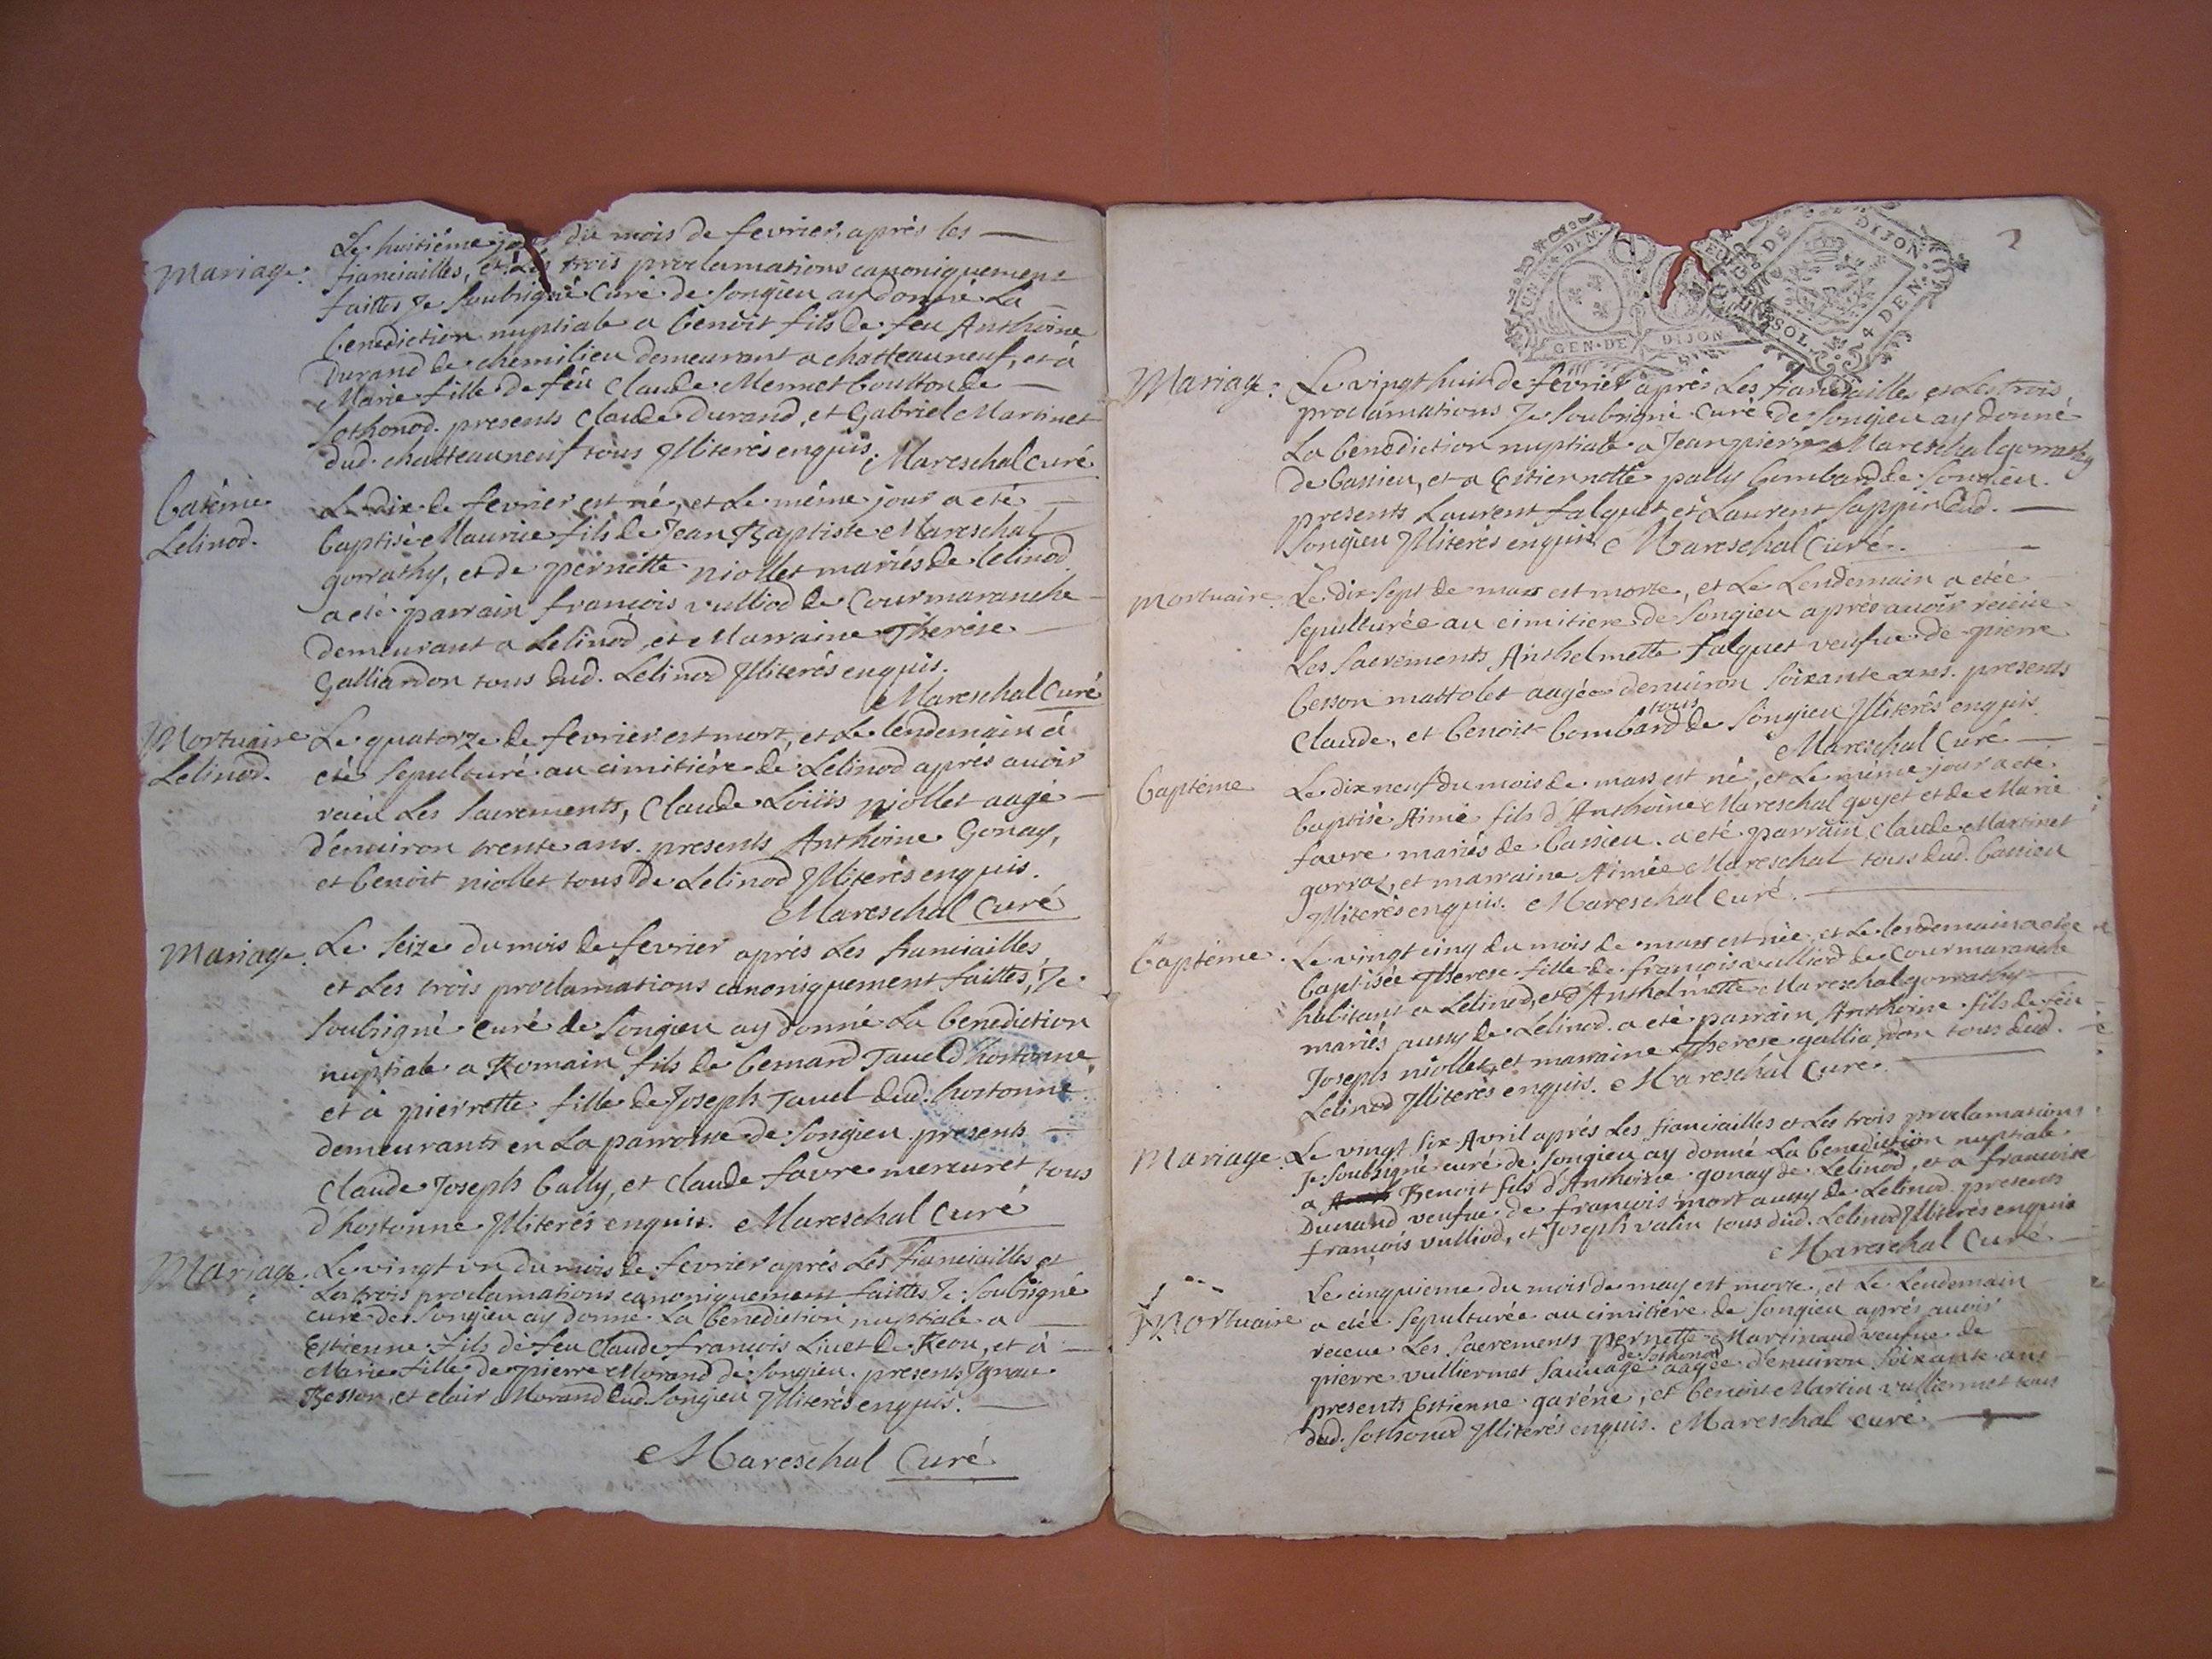 Mariage.
Le huitiême jour du mois de fevrier, aprés les
fianciailles, et les trois proclamations canoniquement
faittes Je soubsigné Curé de Songieu ay donné La
benediction nuptiale a benoit fils de feu Anthoine
Durand de chemilieu demeurant a chatteauneuf, et à
Marie fille de feu Claude Mermet boutton de
Sothonod. presents Claude Durand, et Gabriel Martinet
dud. chatteauneuf tous Illiterés enquis. Mareschal curé
batême
Lelinod.
Le dix de fevrier est né, et Le même jour a eté
baptisé Maurice fils de Jean Baptiste Mareschal
gorrathy, et de pernette niollet mariés de Lelinod.
a eté parrain françois vulliod de Courmaranche
demeurant a Lelinod, et Marraine Therese
Galliardon tous dud. Lelinod Illiterés enquis.
Mareschal Curé
Mortuaire
Lelinod.
Le quatorze de fevrier est mort, et Le lendemain à
eté sepulturé au cimitiére de Lelinod aprés avoir
receu Les Sacrements, Claude Loüis niollet aagé
d'environ trente ans. presents Anthoine Gonay,
et benoit niollet tous de Lelinod Illiterés enquis.
Mareschal Curé
Mariage.
Le seize du mois de fevrier aprés Les fianciailles
et Les trois proclamations canoniquement faittes, Je
soubsigné curé de Songieu ay donné La benediction
nuptiale a Romain fils de bernard Tavel d'hostonne,
et à pierrette fille de Joseph Tavel dud. hostonne
demeurants en La parroisse de Songieu. presents
Claude Joseph bally, et Claude favre mercuret tous
d'hostonne Illiterés enquis. Mareschal Curé
Mariage.
Le vingt un du mois de fevrier aprés Les fianciailles et
Les trois proclamations canoniquement faittes Je soubsigné
curé de Songieu ay donné La benediction nuptiale a
Estienne fils de feu Claude françois Livet de Reou, et à
Marie fille de pierre Morand de Songieu. presents Ignace
Besson, et clair Morand dud. Songieu Illiterés enquis.
Mareschal Curé
2
UN DEN.
GEN. DE DIJON
DIJON
SOL. 4 DEN.
Mariage.
Le vingt huit de fevrier aprés Les fianciailles et Les trois
proclamations Je soubsigné Curé de Songieu ay donné
La benediction nuptiale a Jean pierre Mareschal gorrathy
de bassieu, et a Estiennette pally bombard de Songieu.
presents Laurent falquet et Laurent sappin dud.
Songieu Illiterés enquis. Mareschal Curé.
mortuaire.
Le dix sept de mars est morte, et Le Lendemain a etée
sepulturée au cimitiere de Songieu aprés avoir receue
Les Sacrements Anthelmette falquet veufve de pierre
besson mattolet aagée denviron soixante ans. presents
Claude, et benoit bombard tous de Songieu Illiterés enquis
Mareschal Curé
baptême
Le dix neuf du mois de mars est né, et Le même jour a eté
baptisé Aimé fils d'Anthoine Mareschal goyet et de Marie
favre mariés de bassieu. a eté parrain Claude Martinet
gorraz, et marraine Aimée Mareschal tous dud. bassieu
Illiterés enquis. Mareschal Curé.
baptême.
Le vingt cinq du mois de mars est née, et Le lendemain a etée
baptisée Therese fille de françois vulliod de Courmaranche
habitant a Lelinod, et d'Anthelmette Mareschal gorrathy
mariés aussy de Lelinod. a eté parrain Anthoine fils de feu
Joseph niollet, et marraine Therese galliardon tous dud.
Lelinod Illiterés enquis. Mareschal Curé.
Mariage.
Le vingt six Avril aprés Les fianciailles et Les trois proclamations
Je soubsigné curé de Songieu ay donné La benediction nuptiale
a Benoit fils d'Anthoine gonay de Lelinod, et a françoise
Dunand veufve de françois mort aussy de Lelinod. presents
françois vulliod, et Joseph valin tous dud. Lelinod Illiterés enquis
Mareschal Curé
Mortuaire
Le cinquieme du mois de may est morte, et Le Lendemain
a etée sepulturée au cimitiére de Songieu aprés avoir
receue Les Sacrements pernette Martinaud veufve de
pierre vulliermet sauvage de Sothonod aagée d'environ soixante ans
presents Estienne garéne, et benoit Martin vulliermet tous
dud. Sothonod Illiterés enquis. Mareschal curé